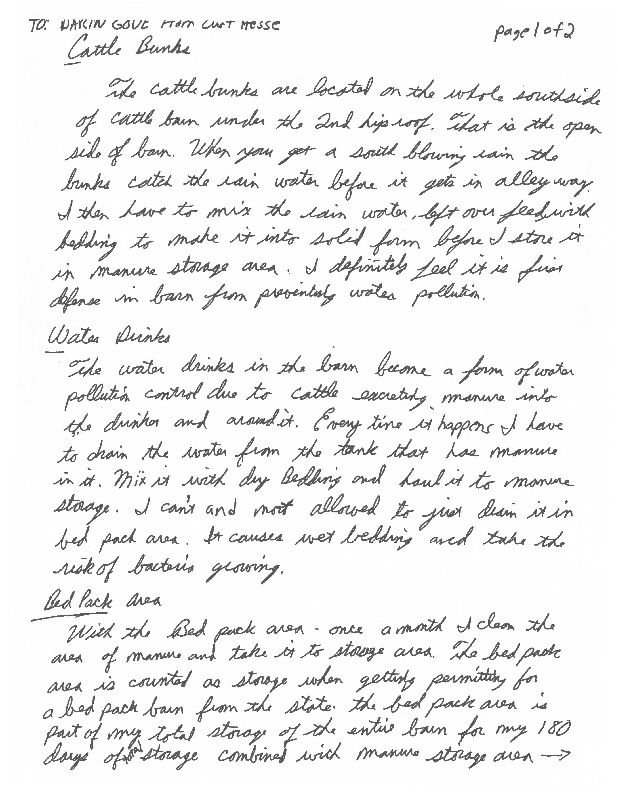 TO: DAKIN GOVE From CURT MESSE
page 1 of 2
Cattle Bunks
The cattle bunks are located on the whole southside
of cattle barn under the 2nd hip roof. That is the open
side of barn. When you get a south blowing rain the
bunks catch the rain water before it gets in alley way.
I then have to mix the rain water, left over feed, with
bedding to make it into solid form before I store it
in manure storage area. I definitely feel it is first
defense in barn from preventing water pollution.
Water Drinks
The water drinks in the barn become a form of water
pollution control due to cattle excreting manure into
the drinker and around it. Every time it happens I have
to drain the water from the tank that has manure
in it. Mix it with dry Bedding and haul it to manure
storage. I can't and not allowed to just drain it in
bed pack area. It causes wet bedding and take the
risk of bacteria growing.
Bed Pack area
With the Bed pack area - once a month I clean the
area of manure and take it to storage area. The bed pack
area is counted as storage when getting permitting for
a bed pack barn from the state. the bed pack area is
part of my total storage of the entire barn for my 180
days of storage combined with manure storage area →